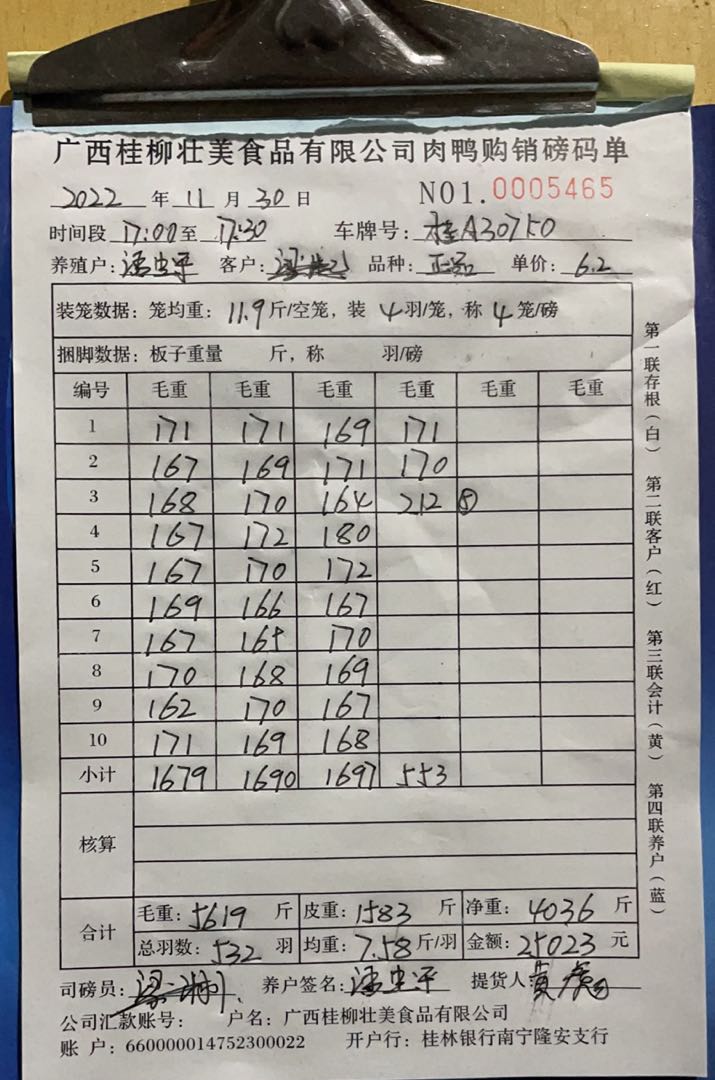 广西桂柳壮美食品有限公司肉鸭购销磅码单
2022 年 11 月 30 日 NO1.0005465
时间段 17:00 至 17:30 车牌号: 桂A307F0
养殖户: 潘忠平 客户: 品种: 正品 单价: 6.2
装笼数据: 笼均重: 11.9 斤/空笼, 装 4 羽/笼, 称 4 笼/磅
捆脚数据: 板子重量 斤, 称 羽/磅
编号 毛重 毛重 毛重 毛重 毛重 毛重
1 171 171 169 171
2 167 169 171 170
3 168 170 164 212 ⑤
4 167 172 180
5 167 170 172
6 169 166 167
7 167 165 170
8 170 168 169
9 162 170 167
10 171 169 168
小计 1679 1690 1697 553
核算
合计
毛重: 5619 斤 皮重: 1583 斤 净重: 4036 斤
总羽数: 532 羽 均重: 7.58 斤/羽 金额: 25023 元
司磅员: 养户签名: 潘忠平 提货人: 黄
公司汇款账号: 户名: 广西桂柳壮美食品有限公司
账 户: 660000014752300022 开户行: 桂林银行南宁隆安支行
第一联存根(白) 第二联客户(红) 第三联会计(黄) 第四联养户(蓝)